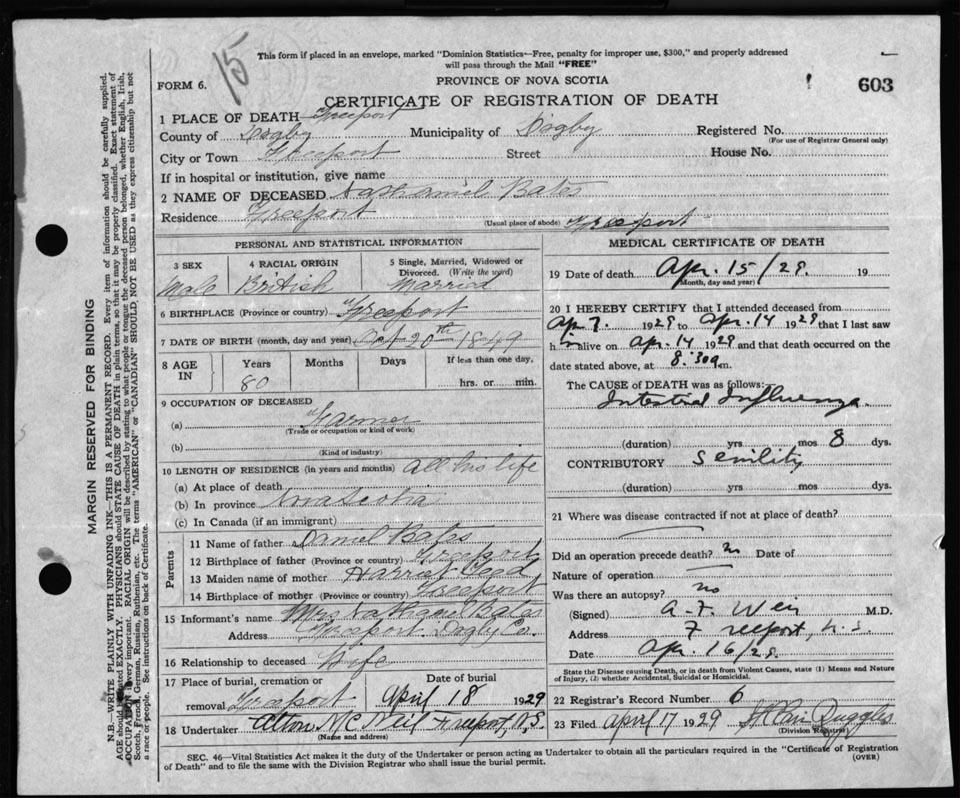 This form if placed in an envelope, marked "Dominion Statistics—Free, penalty for improper use, $300," and properly addressed
will pass through the Mail "FREE"
15
FORM 6.
PROVINCE OF NOVA SCOTIA
603
CERTIFICATE OF REGISTRATION OF DEATH
1 PLACE OF DEATH Freeport
County of Digby Municipality of Digby Registered No.
(For use of Registrar General only)
City or Town Freeport Street House No.
If in hospital or institution, give name
2 NAME OF DECEASED Nathaniel Bates
Residence Freeport (Usual place of abode) Freeport
PERSONAL AND STATISTICAL INFORMATION
3 SEX
Male
4 RACIAL ORIGIN
British
5 Single, Married, Widowed or
Divorced. (Write the word)
Married
6 BIRTHPLACE (Province or country) Freeport
7 DATE OF BIRTH (month, day and year) Oct 20th 1849
8 AGE
IN
Years
80
Months
Days
If less than one day,
hrs. or min.
9 OCCUPATION OF DECEASED
(a) Farmer
(Trade or occupation or kind of work)
(b)
(Kind of industry)
10 LENGTH OF RESIDENCE (in years and months) All his life
(a) At place of death
(b) In province Nova Scotia
(c) In Canada (if an immigrant)
Parents
11 Name of father Daniel Bates
12 Birthplace of father (Province or country) Freeport
13 Maiden name of mother Harriet
14 Birthplace of mother (Province or country) Freeport
15 Informant's name Mrs Nathaniel Bates
Address Freeport Digby Co.
16 Relationship to deceased Wife
17 Place of burial, cremation or
removal Freeport
Date of burial
April 18 1929
18 Undertaker Alton McNeil Freeport N.S.
(Name and address)
MEDICAL CERTIFICATE OF DEATH
19 Date of death Apr. 15/29. 19
(Month, day and year)
20 I HEREBY CERTIFY that I attended deceased from
Apr 7. 1929 to Apr. 14 1929 that I last saw
him alive on Apr. 14 1929 and that death occurred on the
date stated above, at 8:30 a m.
The CAUSE of DEATH was as follows:
Intestinal Influenza.
(duration) yrs mos 8 dys.
CONTRIBUTORY Senility
(duration) yrs. mos. dys.
21 Where was disease contracted if not at place of death?
Did an operation precede death? no Date of
Nature of operation
Was there an autopsy? no
(Signed) A. F. Weir M.D.
Address Freeport, N.S.
Date Apr. 16/29.
State the Disease causing Death, or in death from Violent Causes, state (1) Means and Nature
of Injury, (2) whether Accidental, Suicidal or Homicidal.
22 Registrar's Record Number 6
23 Filed April 17 1929 Ruggles
(Division Registrar)
SEC. 46—Vital Statistics Act makes it the duty of the Undertaker or person acting as Undertaker to obtain all the particulars required in the "Certificate of Registration
of Death" and to file the same with the Division Registrar who shall issue the burial permit.
(OVER)
MARGIN RESERVED FOR BINDING
N.B.—WRITE PLAINLY WITH UNFADING INK—THIS IS A PERMANENT RECORD. Every item of information should be carefully supplied.
AGE should be stated EXACTLY. PHYSICIANS should STATE CAUSE OF DEATH in plain terms, so that it may be properly classified. Exact statement of
OCCUPATION is very important. RACIAL ORIGIN will be described by stating to what people or tongue the deceased person belonged, whether English, Irish,
Scotch, French, German, Russian, Ruthenian, etc. The terms "AMERICAN" or "CANADIAN" SHOULD NOT BE USED as they express citizenship but not
a race or people. See instructions on back of Certificate.